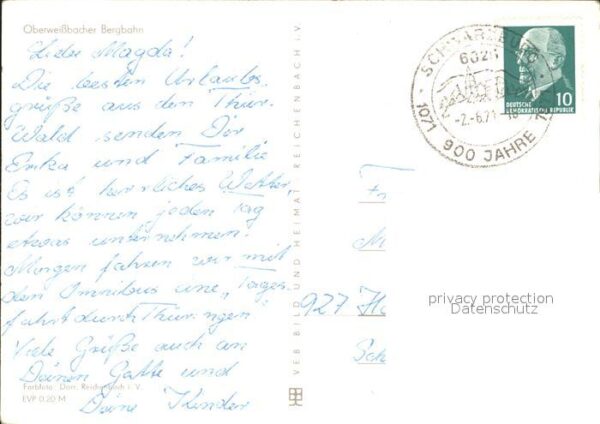 Oberweißbacher Bergbahn
Liebe Magda!
Die besten Urlaubs-
grüße aus dem Thür.
Wald senden Dir
Erika und Familie
Es ist herrliches Wetter,
wir können jeden Tag
etwas unternehmen.
Morgen fahren wir mit
dem Omnibus eine "Tages-
fahrt durch Thüringen"
Viele Grüße auch an
Deinen Gatte und
Deine Kinder
Farbfoto: Darr, Reichenbach i. V.
EVP 0,20 M
VEB BILD UND HEIMAT REICHENBACH i. V.
SCHWARZBURG
1071 900 JAHRE
-2.-6.71
DEUTSCHE
DEMOKRATISCHE REPUBLIK
10
F
M
927 Ho
Sch
privacy protection
Datenschutz